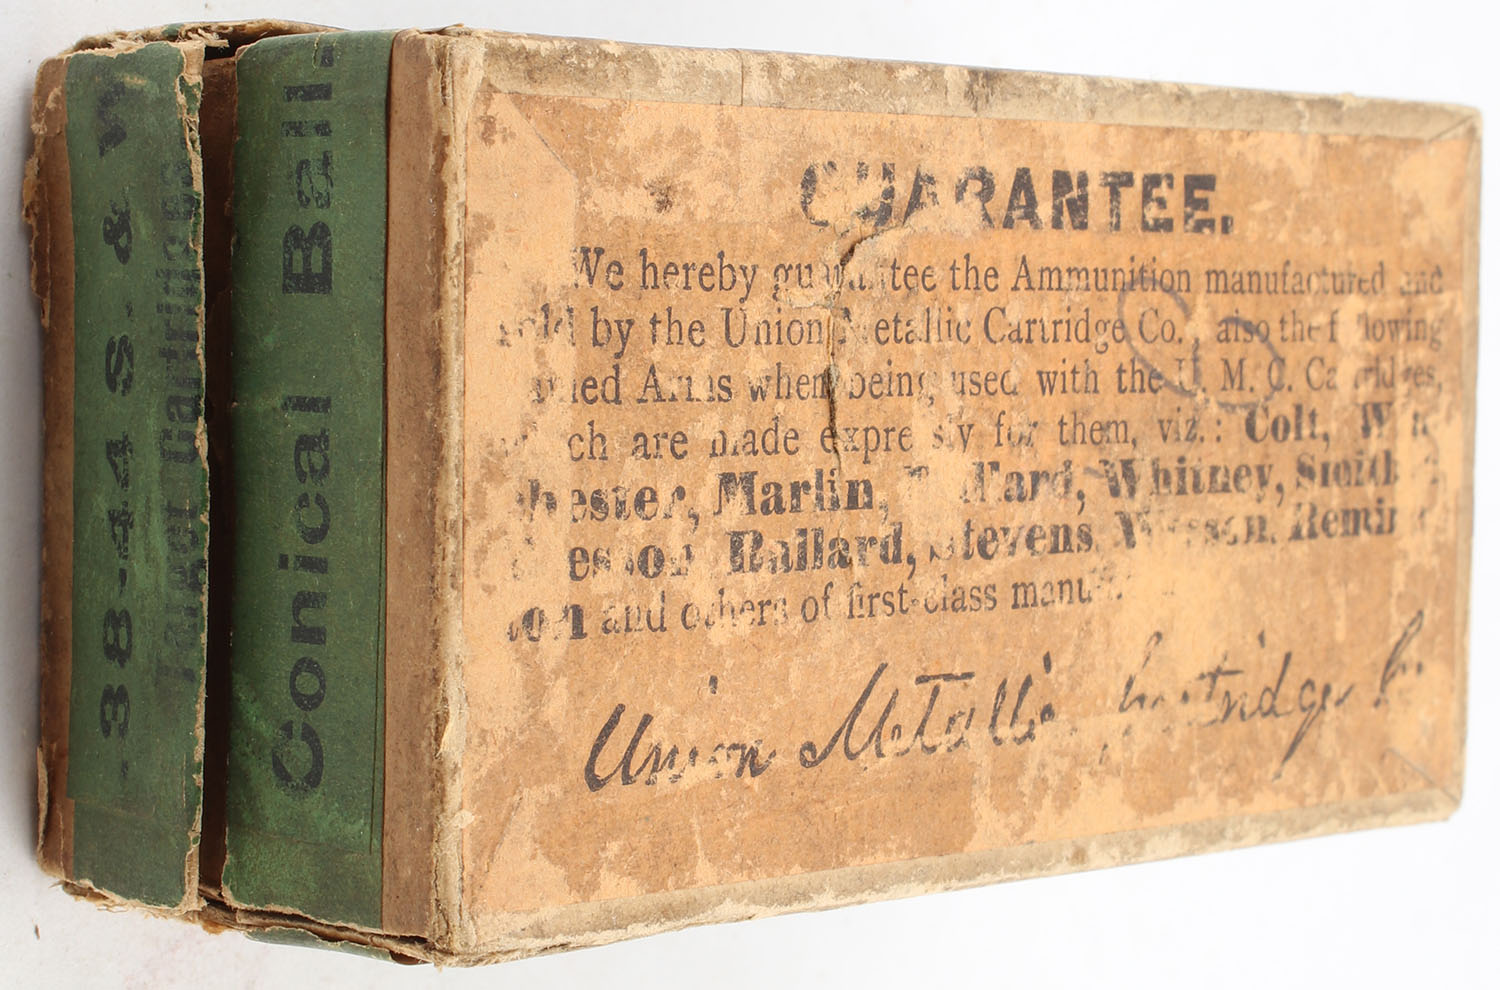 GUARANTEE.
We hereby guarantee the Ammunition manufactured and
sold by the Union Metallic Cartridge Co., also the following
named Arms when being used with the U. M. C. Cartridges,
which are made expressly for them, viz.: Colt, Win
chester, Marlin, Bullard, Whitney, Smith &
Wesson, Ballard, Stevens, Wesson, Reming
ton and others of first-class
Union Metallic Cartridge Co.
38-44 S. & W
Target Cartridges
Conical Ball.